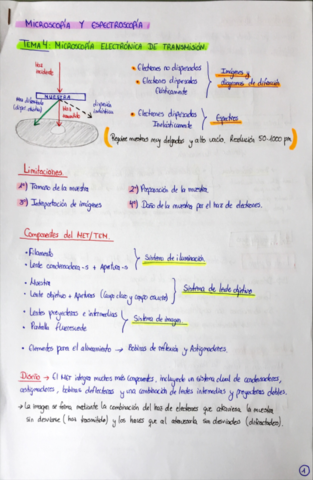 MICROSCOPÍA Y ESPECTROSCOPÍA
TEMA 4: MICROSCOPÍA ELECTRÓNICA DE TRANSMISIÓN.
Haz incidente
MUESTRA
Haz difractado
(disper. elástica)
Haz transmitido
dispersión inelástica
• Electrones no dispersados
• Electrones dispersados Elásticamente
Imágenes y diagramas de difracción
• Electrones dispersados Inelásticamente
Espectros
(Requiere muestras muy delgadas y alto vacío. Resolución 50-1000 pm)
Limitaciones
1º) Tamaño de la muestra
2º) Preparación de la muestra.
3º) Interpretación de imágenes
4º) Daño de la muestra por el haz de electrones.
Componentes del MET/TEM
• Filamento
• Lente condensadora-s + Apertura-s
Sistema de iluminación
• Muestra
• Lente objetivo + Aperturas (campo claro y campo oscuro)
Sistema de lente objetivo
• Lentes proyectoras e intermedias
• Pantalla fluorescente
Sistema de imagen
• Elementos para el alineamiento → Bobinas de deflexión y Astigmadores.
Diseño → El MET integra muchos más componentes, incluyendo un sistema dual de condensadores,
astigmadores, bobinas deflectoras y una combinación de lentes intermedias y proyectoras dobles.
→ La imagen se forma mediante la combinación del haz de electrones que atraviesa la muestra
sin desviarse (haz transmitido) y los haces que al atravesarla son desviados (difractados).
1